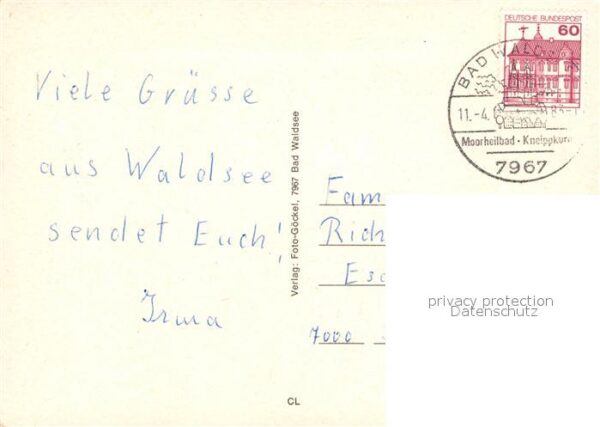 Viele Grüsse
aus Waldsee
sendet Euch!
Irma
Verlag: Foto-Göckel, 7967 Bad Waldsee
CL
DEUTSCHE BUNDESPOST
60
BAD WALDSEE
11.-4.
Moorheilbad - Kneippkur
7967
Fam
Rich
Esc
7000
privacy protection
Datenschutz